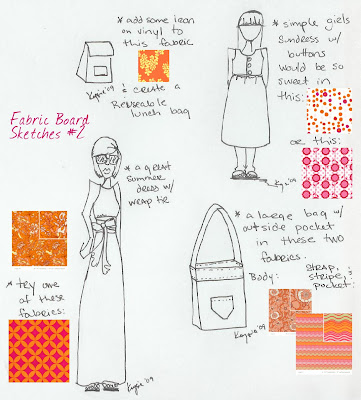 * add some iron
on vinyl to
this fabric
'09
& create a
Reuseable
lunch bag
* simple girls
sundress w/
buttons
would be so
sweet in
this:
or this:
'09
Fabric Board
Sketches #2
* a great
summer
dress w/
wrap tie
* try one
of these
fabrics:
'09
* a large bag w/
outside pocket
in these two
fabrics.
Body:
strap,
stripe, &
pocket:
'09